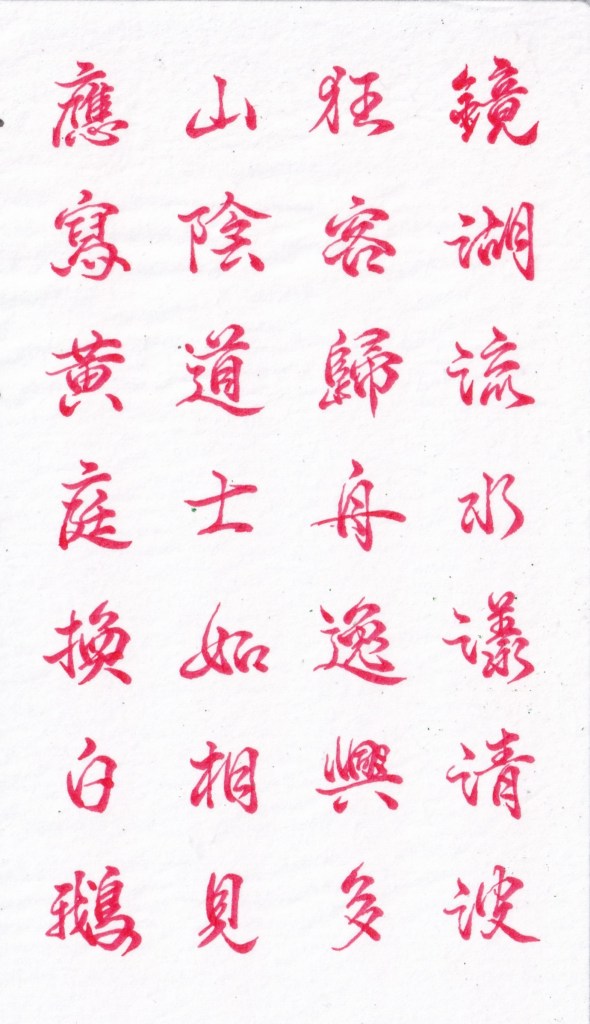 鏡湖流水漾清波
狂客歸舟逸興多
山陰道士如相見
應寫黃庭換白鵝